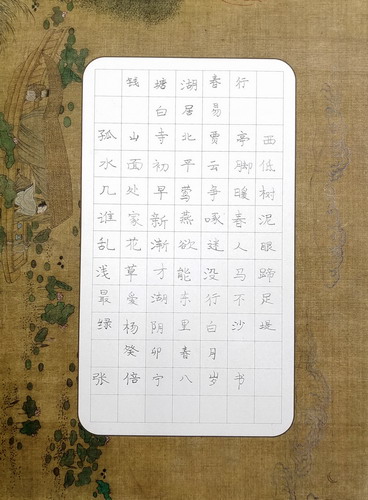 钱塘湖春行
白居易
孤山寺北贾亭西
水面初平云脚低
几处早莺争暖树
谁家新燕啄春泥
乱花渐欲迷人眼
浅草才能没马蹄
最爱湖东行不足
绿杨阴里白沙堤
癸卯春月
张倍宁八岁书